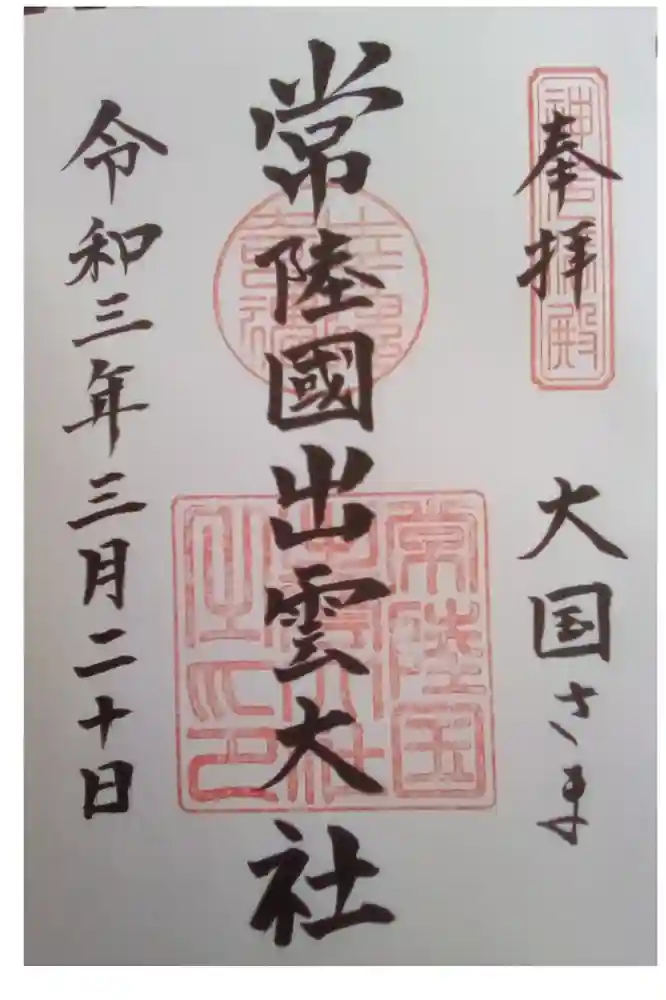 奉拝
大国さま
常陸國出雲大社
令和三年三月二十日
常陸国